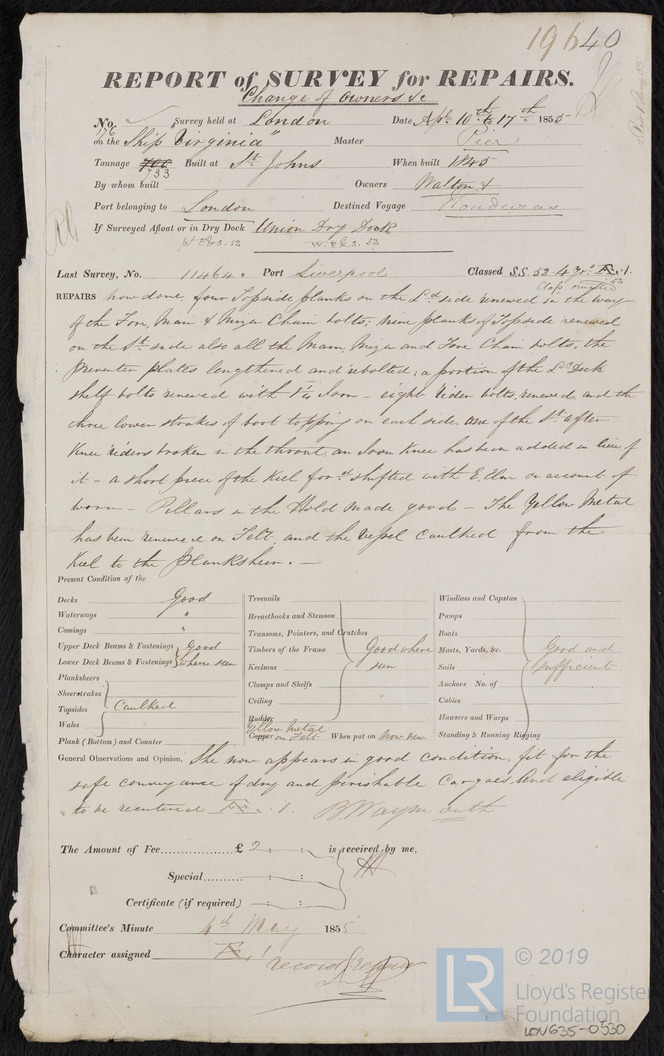 19640
REPORT of SURVEY for REPAIRS.
Change of Owners &c
No. 176 Survey held at London Date, Apl. 10th to 17th 1855
on the Ship Virginia" Master Pier
Tonnage 700 733 Built at St. Johns When built 1845
By whom built Owners Walton &
Port belonging to London Destined Voyage
If Surveyed Afloat or in Dry Dock Union Dry Dock
W. P. & S. 52
Last Survey, No. 11464. Port Liverpool Classed S.S. 52-4 Yrs .1.
Class omitted
REPAIRS now done, four Topside planks on the Ld. side renewed in the way
of the Fore, Main & Mizen Chain bolts; nine planks of Topside renewed
on the St. side also all the Main, Mizen and Fore Chain bolts, the
preventer plates lengthened and rebolted; a portion of the Lr. Deck
shelf bolts renewed with 1 1/4 Iron - eight Rider bolts renewed, and the
three lower strakes of boot topping on each side. one of the St. after
Knee riders broken in the throat, an Iron Knee has been added in lieu of
it - a short piece of the Keel ford. shifted with E. Elm on account of
worm - Pillars in the Hold made good - The Yellow Metal
has been renewed on Felt, and the vessel caulked from the
Keel to the planksheer. -
Present Condition of the
Decks Good
Waterways "
Comings "
Upper Deck Beams & Fastenings Good
Lower Deck Beams & Fastenings where seen
Planksheers
Sheerstrakes
Topsides Caulked
Wales
Plank (Bottom) and Counter
Treenails
Breasthooks and Stemson
Transoms, Pointers, and Crutches
Timbers of the Frame Good where
Keelsons seen
Clamps and Shelfs
Ceiling
Rudder
Yellow Metal
Copper on Felt When put on Now new
Windlass and Capstan
Pumps
Boats
Masts, Yards, &c. Good and
Sails sufficient
Anchors No. of
Cables
Hawsers and Warps
Standing & Running Rigging
General Observations and Opinion, She now appears in good condition, fit for the
safe conveyance of dry and perishable Cargoes, And eligible
to be reentered .1.
The Amount of Fee £ 2 : : is received by me,
Special : :
Certificate (if required) : :
Committee's Minute 4th May 1855
Character assigned 1
record
© 2019
LR Lloyd's Register
Foundation
LON635-0530